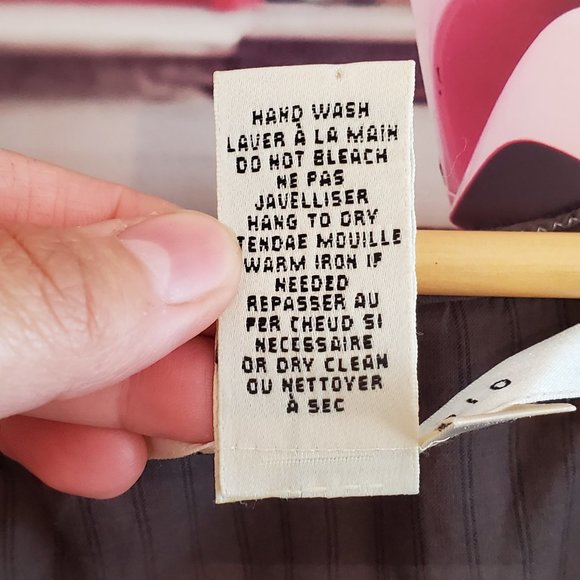 HAND WASH
LAVER À LA MAIN
DO NOT BLEACH
NE PAS
JAVELLISER
HANG TO DRY
TENDAE MOUILLE
WARM IRON IF
NEEDED
REPASSER AU
FER CHEUD SI
NECESSAIRE
OR DRY CLEAN
OU NETTOVER
À SEC